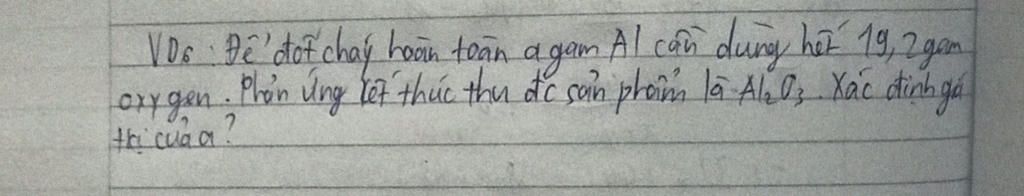 VD6: Để đốt cháy hoàn toàn a gam Al cần dùng hết 19,2 gam
oxygen. Phản ứng kết thúc thu đc sản phẩm là Al₂O₃. Xác định giá
trị của a?